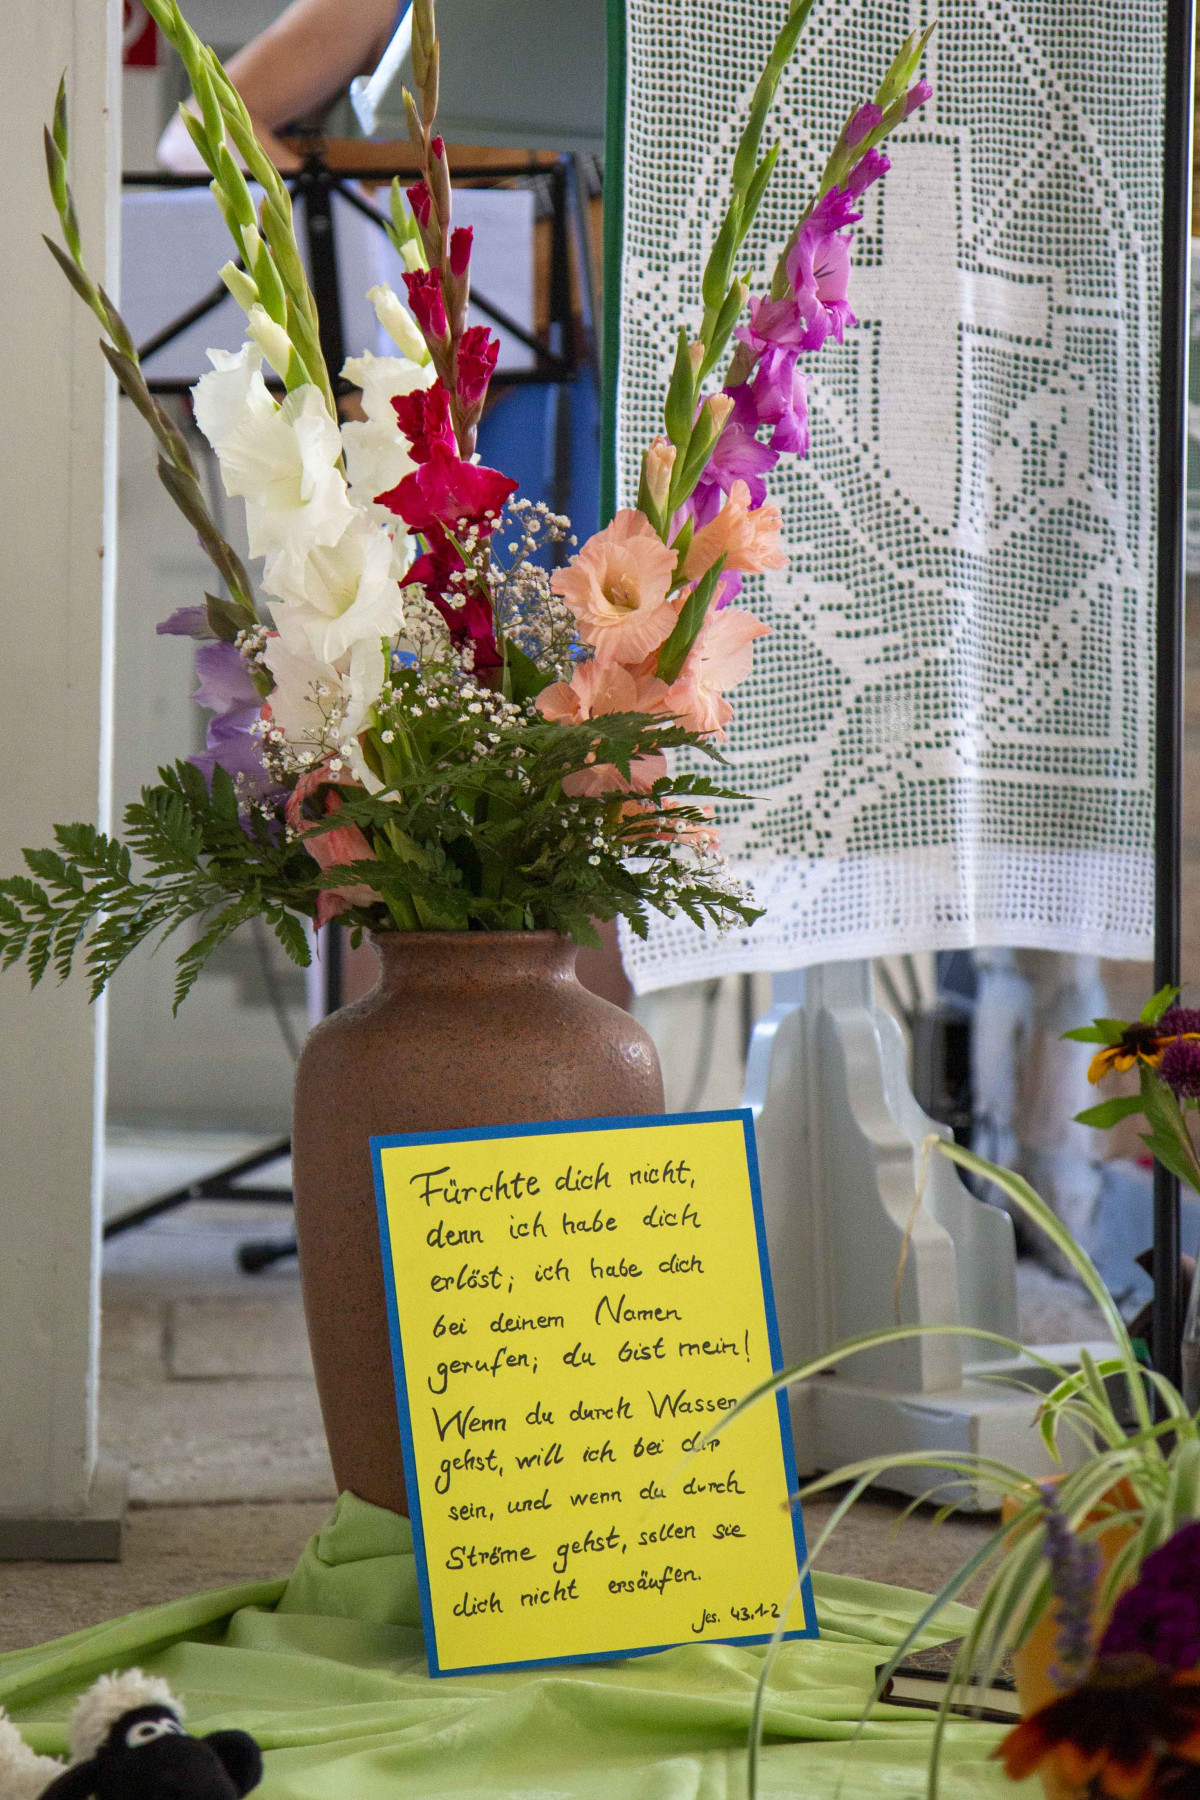 Fürchte dich nicht,
denn ich habe dich
erlöst; ich habe dich
bei deinem Namen
gerufen; du bist mein!
Wenn du durch Wasser
gehst, will ich bei dir
sein, und wenn du durch
Ströme gehst, sollen sie
dich nicht ersäufen.
Jes. 43,1-2